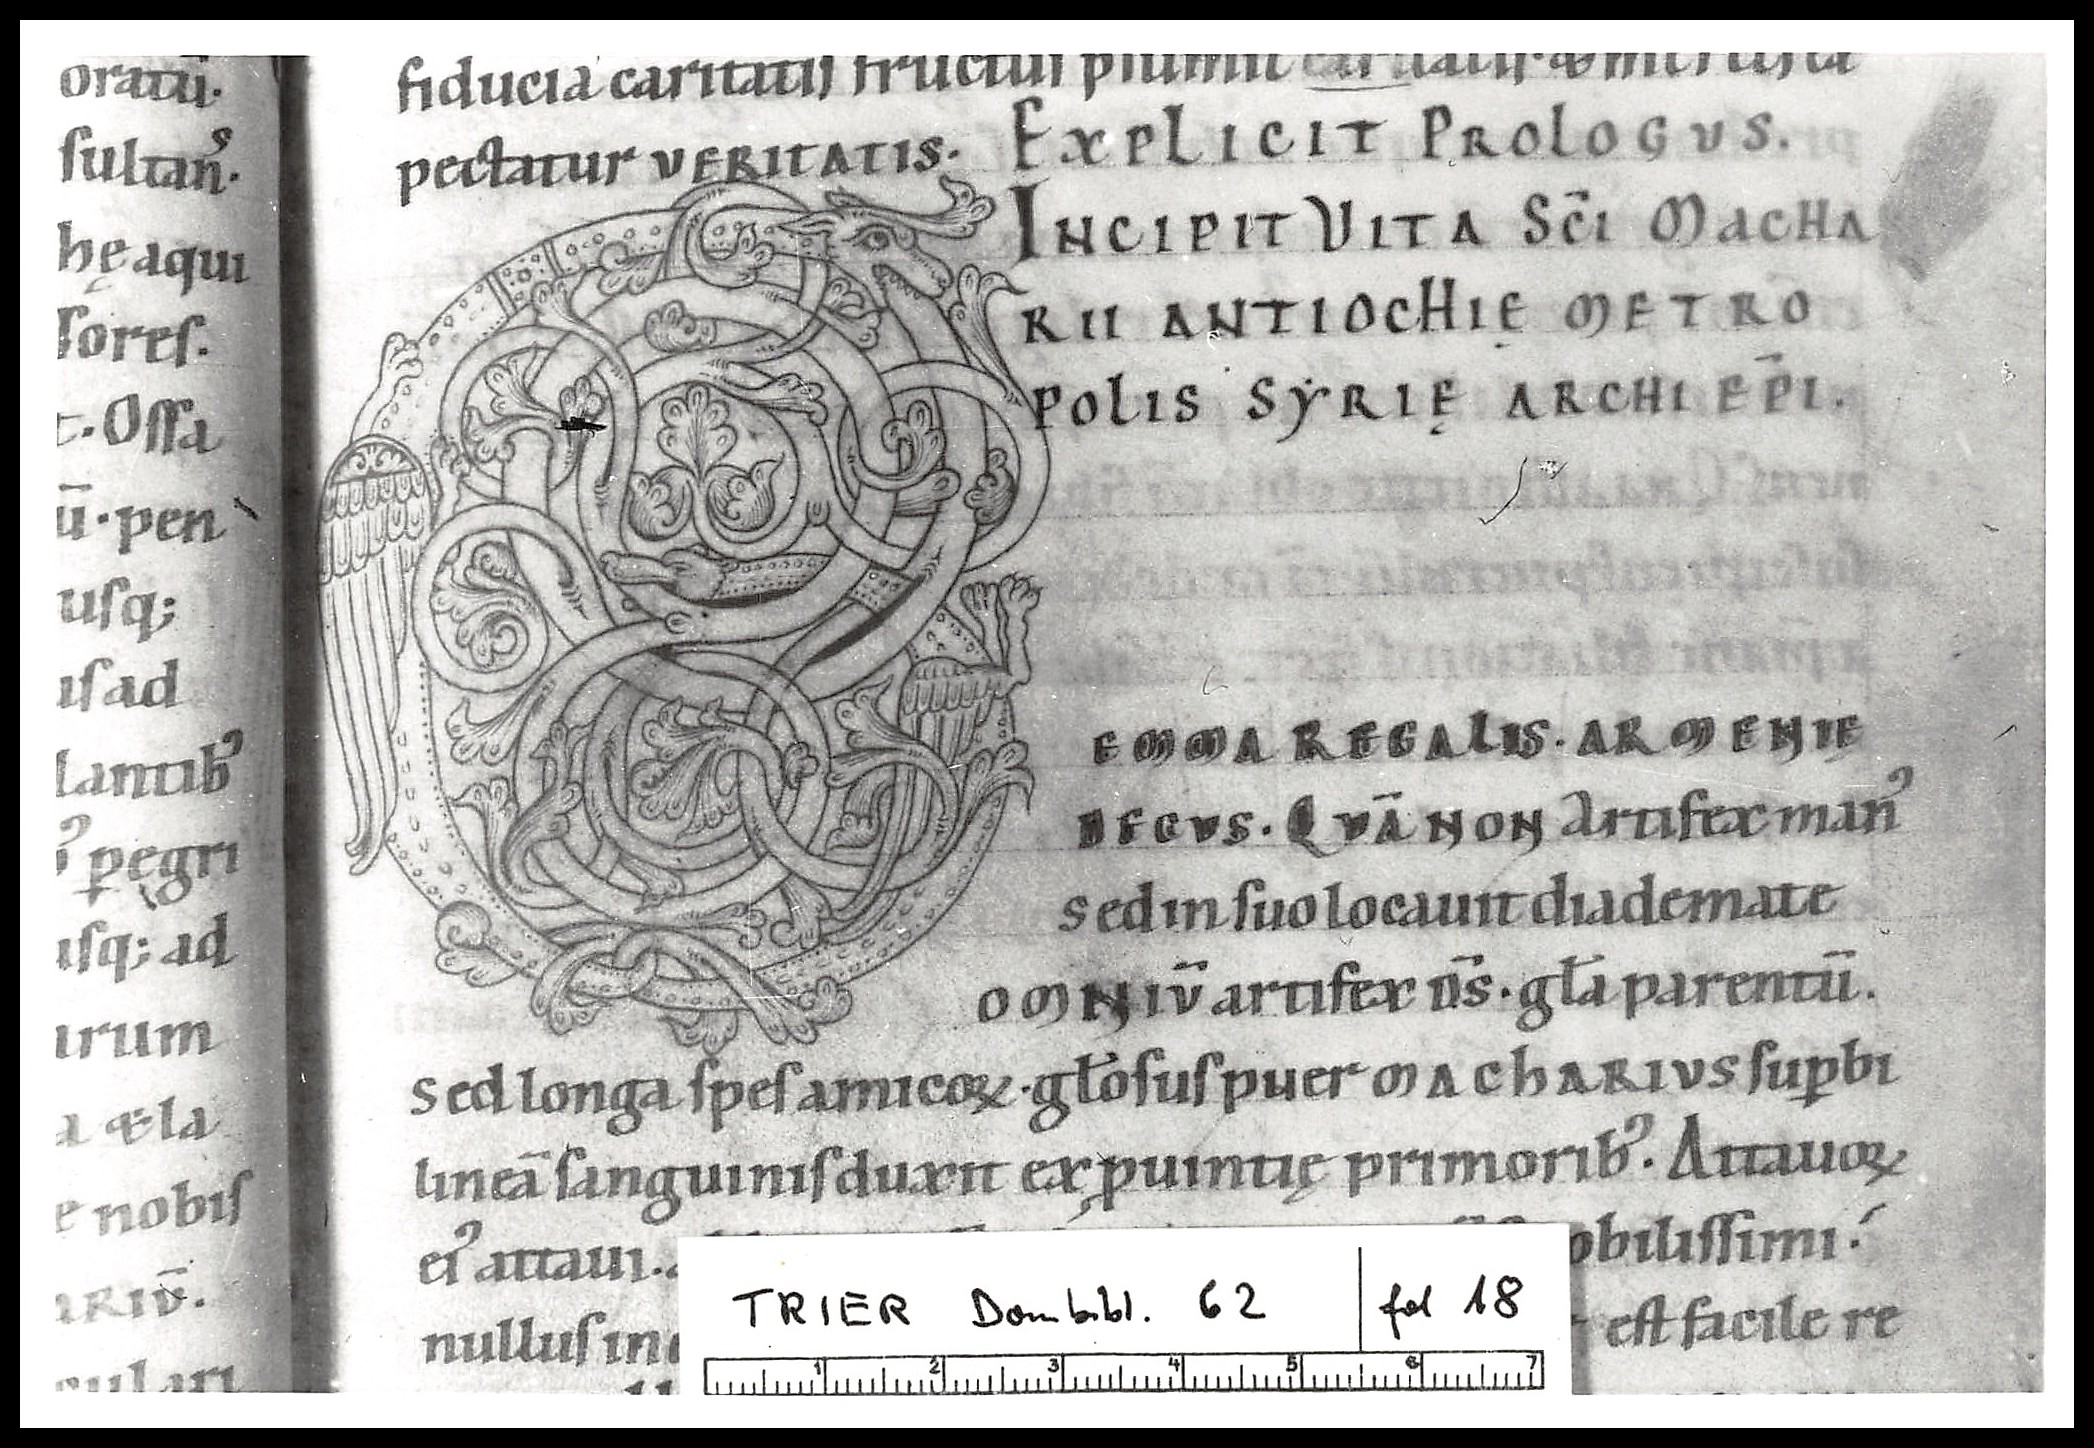 oratū.
sultan⁹.
hę aqui
sores.
t. Ossa
ū. pen
usq;
usad
lantib⁹
pegri
usq; ad
arum
a & la
e nobis
ARIŪ.
culari
fiducia caritatis fructus plurimi caritatis. &
pectatur VERITATIS. EXPLICIT PROLOGVS.
INCIPIT VITA SC̄I MACHA
RII ANTIOCHIĘ METRO
POLIS SẎRIĘ ARCHIEP̄I.
GEMMA REGALIS. ARMENIE
DECVS. QVĀ NON Artifex man⁹
sed in suo locauit diademate
OMNIŪ artifex d̄s. gl̄a parentū.
Sed longa spes amicoꝝ. gl̄osus puer MAChARIVS suꝑbi
lineā sanguinis duxit ex ꝓuintię primorib⁹. Attauoꝝ
ei⁹ attaui. nobilissimi.
nullus in est facile re
TRIER Dombibl. 62 fol 18
1 2 3 4 5 6 7